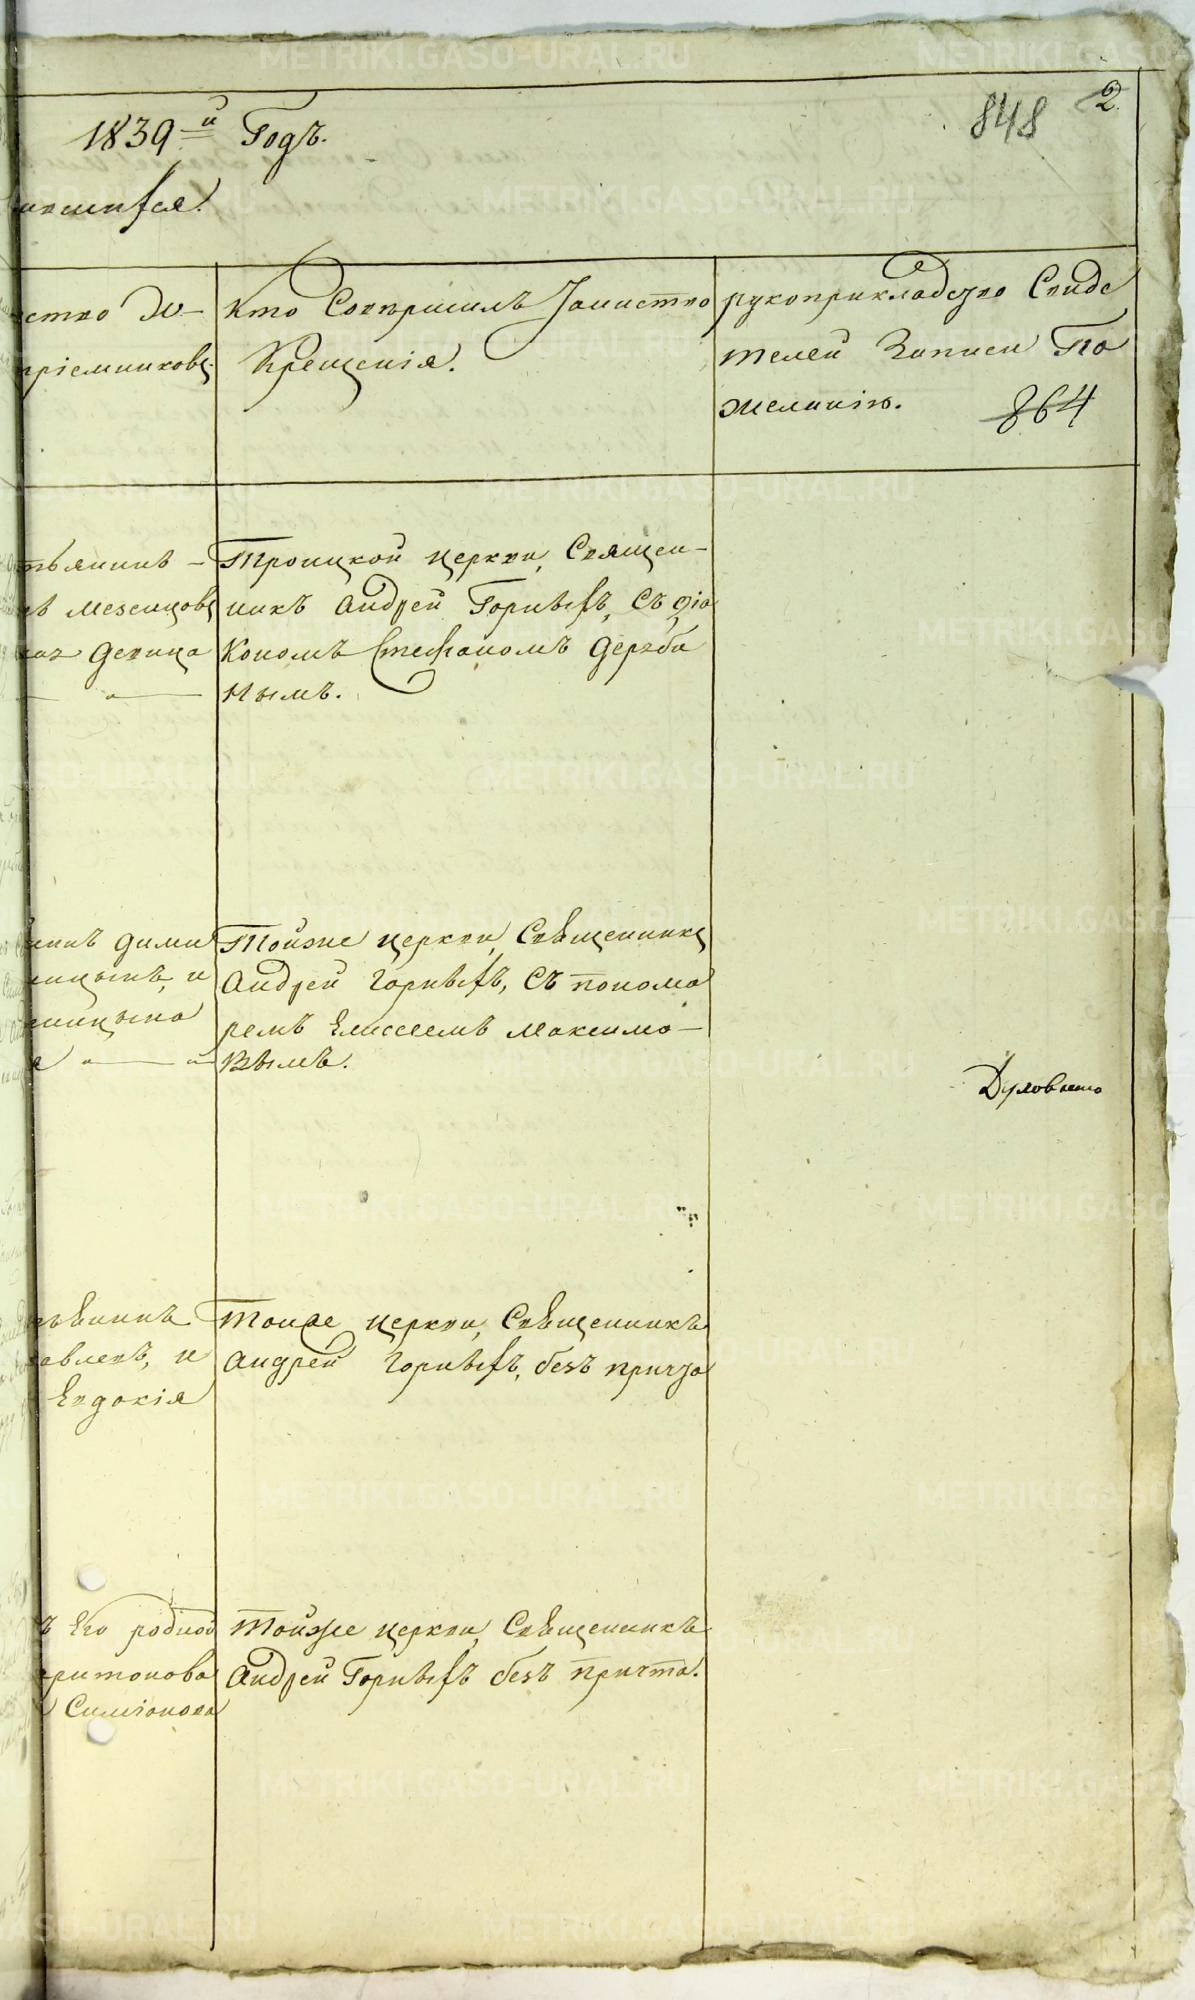 1839-й Годъ.
848 2
ство Ж-
пріемниковъ.
Кто Совершилъ Таинство
Крещенія.
рукоприкладство Свиде
телей Записи По
желанію.
864
тьянинъ -
въ мезенцовъ
девица
Троицкой церкви, Священ-
никъ Андрей Горныхъ, Съ діа
Кономъ Стефаномъ Держби
нымъ.
нинъ дими
ницынъ, и
ницына
Тойже церкви, Священникъ
Андрей Горныхъ, Съ понома
ремъ Елисеемъ Максимо-
вымъ.
тьянинъ
авлевъ, и
Евдокія
Тойже церкви, Священникъ
Андрей Горныхъ, безъ причта
ъ Его родной
ритонова
Симіонова
Тойже церкви, Священникъ
Андрей Горныхъ безъ причта.
METRIKI.GASO-URAL.RU